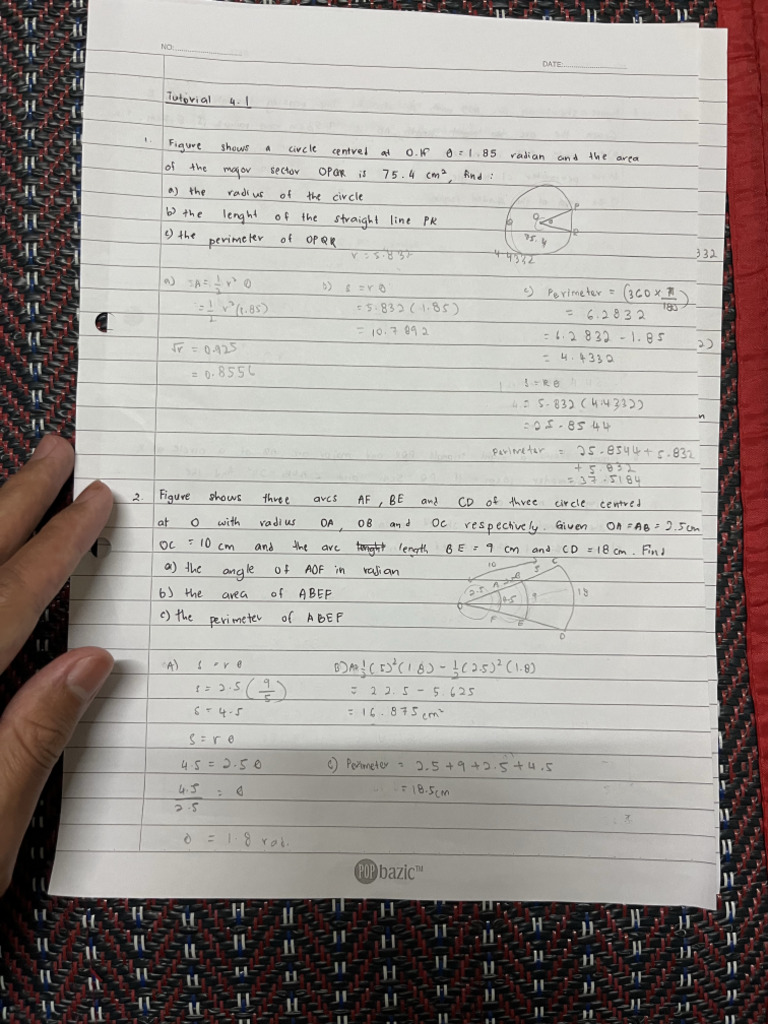 NO:
DATE:
Tutorial 4.1
1. Figure shows a circle centred at O.If θ = 1.85 radian and the area
of the major sector OPQR is 75.4 cm², find :
a) the radius of the circle
b) the lenght of the straight line PR
c) the perimeter of OPQR
r = 5.832
P
Q
O
θ
R
75.4
4.4332
332
a) A = 1/2 r² θ
= 1/2 r² (1.85)
√r = 0.925
= 0.8556
b) s = r θ
= 5.832 (1.85)
= 10.7892
c) Perimeter = (360 × π/180)
= 6.2832
= 6.2832 - 1.85
= 4.4332
2)
s = r θ
= 5.832 (4.4332)
= 25.8544
Perimeter = 25.8544 + 5.832
+ 5.832
= 37.5184
2. Figure shows three arcs AF, BE and CD of three circle centred
at O with radius OA, OB and OC respectively. Given OA = AB = 2.5cm
OC = 10 cm and the arc length BE = 9 cm and CD = 18 cm. Find
a) the angle of AOF in radian
b) the area of ABEF
c) the perimeter of ABEF
10
C
5
B
2.5
A
2.5
O
4.5
9
18
F
E
D
A) s = r θ
s = 2.5 (9/5)
s = 4.5
s = r θ
4.5 = 2.5 θ
4.5/2.5 = θ
θ = 1.8 rad.
B) A = 1/2 (5)² (1.8) - 1/2 (2.5)² (1.8)
= 22.5 - 5.625
= 16.875 cm²
c) Perimeter = 2.5 + 9 + 2.5 + 4.5
= 18.5cm
POP bazic™